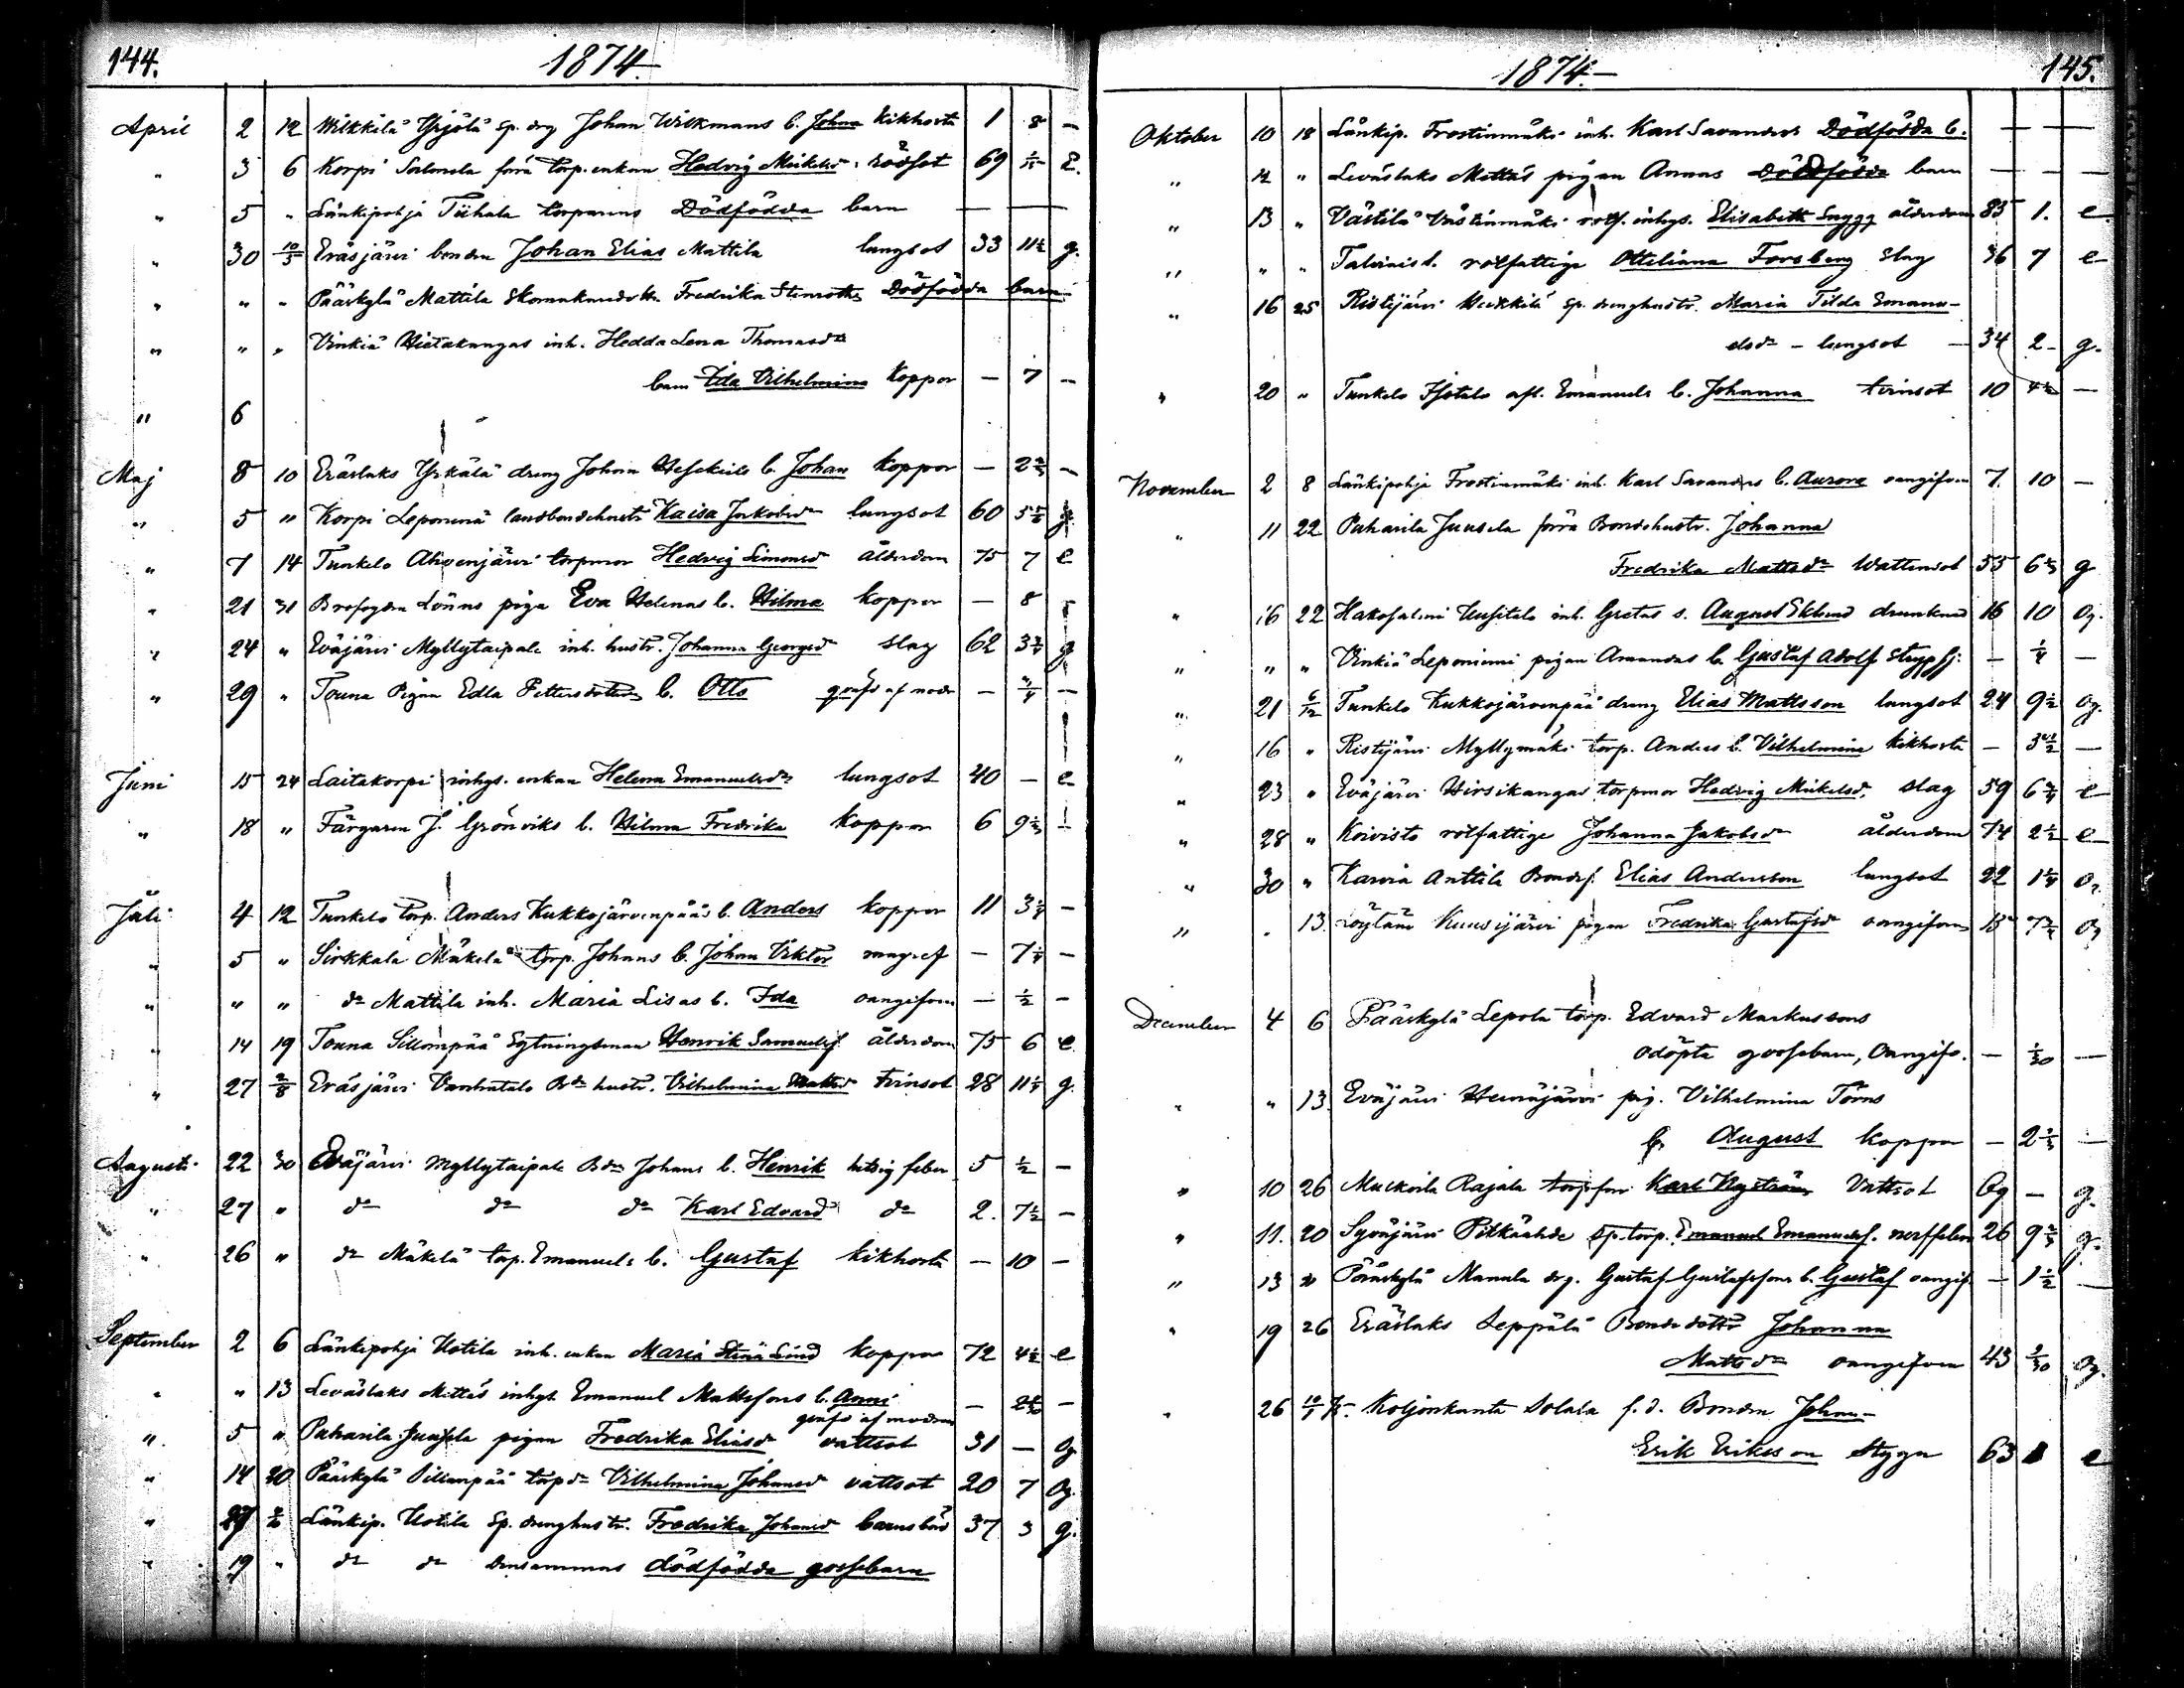 144. 1874.
April 2 12 Wilkkilä Yrjölä sp. drg Johan Wikmans b. Johan kikhosta 1 8 —
" 3 6 Korpi Salmela förra torp.enkan Hedvig Mickelsd: rödsot 69 E.
" 5 " Länkipohja Tiihala torparens Dödfödda barn — —
" 30 10/5 Eräsjärvi bonden Johan Elias Mattila lungsot 33 11½ g.
" " " Pääskylä Mattila Skomakaredottr Fredrika Stenroths Dödfödda barn
" " " Vinkiä Hietakangas inh. Hedda Lena Thomasdr
barn Ida Vilhelmina Koppor — 7 —
" 6
Maj 8 10 Eräslaks Yrkälä dreng Johan b. Johan koppor — 2⅔ —
" 5 " Korpi Leponenä landbondehustr Kaisa Jakobsdr lungsot 60 g
" 7 14 Tunkelo Ahvenjärvi torpmor Hedvig Simonsd ålderdom 75 7 e
" 21 31 Brofogden Lönns piga Eva Helenas b. Hilma koppor — 8 —
" 24 " Eväjärvi Myllytaipale inh. hustr. Johanna Georgsd slag 62 3¾ g
" 29 " Touna Pigan Edla Pettersdotters b. Otto qvafd af modr — ¾ —
Juni 15 24 Laitakorpi inhys. enkan Helena Emanuelsdr lungsot 40 — e
" 18 " Färgaren J. Grönviks b. Hilma Fredrika koppor 6 —
Juli 4 12 Tunkelo torp. Anders Kukkojärvenpääs b. Anders koppor 11 3¼ —
" 5 " Sirkkala Mäkelä torp. Johans b. Johan Viktor magref — 7¼ —
" " " dr Mattila inh. Maria Lisas b. Ida oangifven — ½ —
" 14 19 Touna Sillonpää Sytningsman Henrik Samuelsf ålderdom 75 6 e
" 27 2/8 Eräsjärvi Vanhatalo Bdr hustr. Vilhelmina Mattsd tvinsot 28 g.
Augusti 22 30 Eväjärvi Myllytaipale Bdr Johans b. Henrik hetsig feber 5 ½ —
" 27 " dr dr dr Karl Edvard dr 2. 7½ —
" 26 " dr Mäkelä torp. Emanuels b. Gustaf kikhosta — 10 —
September 2 6 Länkipohja Uotila inh. enkan Maria Stina Lind koppor 72 4½ e
" " 13 Leväslaks Mattas inhys. Emanuel Mattssons b. Anni — —
qvafd af modren
" 5 " Puharila Juusela pigan Fredrika Eliasdr vattsot 31 — og
" 14 20 Pääskylä Sillanpää torpdr Vilhelmina Johansd vattsot 20 7 og.
" 27 Länkip. Uotila Sp. drenghustr. Fredrika Johansd barnsbörd 37 3 g.
" 19 " dr dr densammas dödfödda gossebarn
1874. 145.
Oktober 10 18 Länkip. Frostinmäki inh. Karl Savanders Dödfödda b. — —
" 12 " Leväslaks Mattas pigan Annas Dödfödde barn — — —
" 13 " Västilä Västinmäki rotf. inhys. Elisabeth Snygg ålderdom 85 1. e
" " " rotfattige Ottiliana Forsberg slag 36 7 e
" 16 25 Ristijärvi Heikkilä sp. drenghustr. Maria Tilda Emanu-
elsdr — lungsot — 34 2 — g.
" 20 " Tunkelo Isotalo afl. Emanuels b. Johanna tvinsot 10 4½ —
November 2 8 Länkipohja Frostinmäki inh. Karl Savanders b. Aurora oangifven 7. 10 —
" 11 22 Puharila Juusela förra Bondehustr. Johanna
Fredrika Mattsdr Wattensot 55 g
" 16 22 Hakosalmi Uusitalo inh. Gretas s. August Eklund drunknad 16 10 og.
" " " Vinkiä Leponiemi pigan Amandas b. Gustaf Adolf strypsj: — ¼ —
" 21 6/12 Tunkelo Kukkojärvenpää dreng Elias Mattsson lungsot 24 9½ og.
" 16 " Ristijärvi Myllymäki torp. Anders b. Vilhelmina kikhosta — 3½ —
" 23 " Eväjärvi Hirsikangas torpmor Hedvig Mickelsd. slag 59 6¾ e
" 28 " Koivisto rotfattige Johanna Jakobsdr ålderdom 74 2½ e
" 30 " Karvia Anttila Bondes. Elias Andersson lungsot 22 1¼ og
" . 13. Löytäne Kuusijärvi pigan Fredrika Gustafsdr oangifven 15 og
December 4 6 Pääskylä Lepola torp. Edvard Markussons
odöpta gossebarn, Oangifv. — 1/30 —
" " 13. Eväjärvi Heinäjärvi pig. Vilhelmina Törns
b. August koppor — 2⅓ —
" 10 26 Muckoila Rajala torpfm Karl Nyström Vattsot 69 — g.
" 11. 20 Syväjärvi Pitkäahde sp. torp. Emanuel Emanuelsf. nerffeber 26 9⅔ g.
" 13 20 Pääskylä Mannila drg. Gustaf Gustafssons b. Gustaf oangif — 1½ —
" 19 26 Eräslaks Seppälä Bondedottr Johanna
Mattsdr oangifven 43 og.
" 26 Koljonkanta Solala f.d. Bonden Johan
Erik Eriksson Stygn 63 e